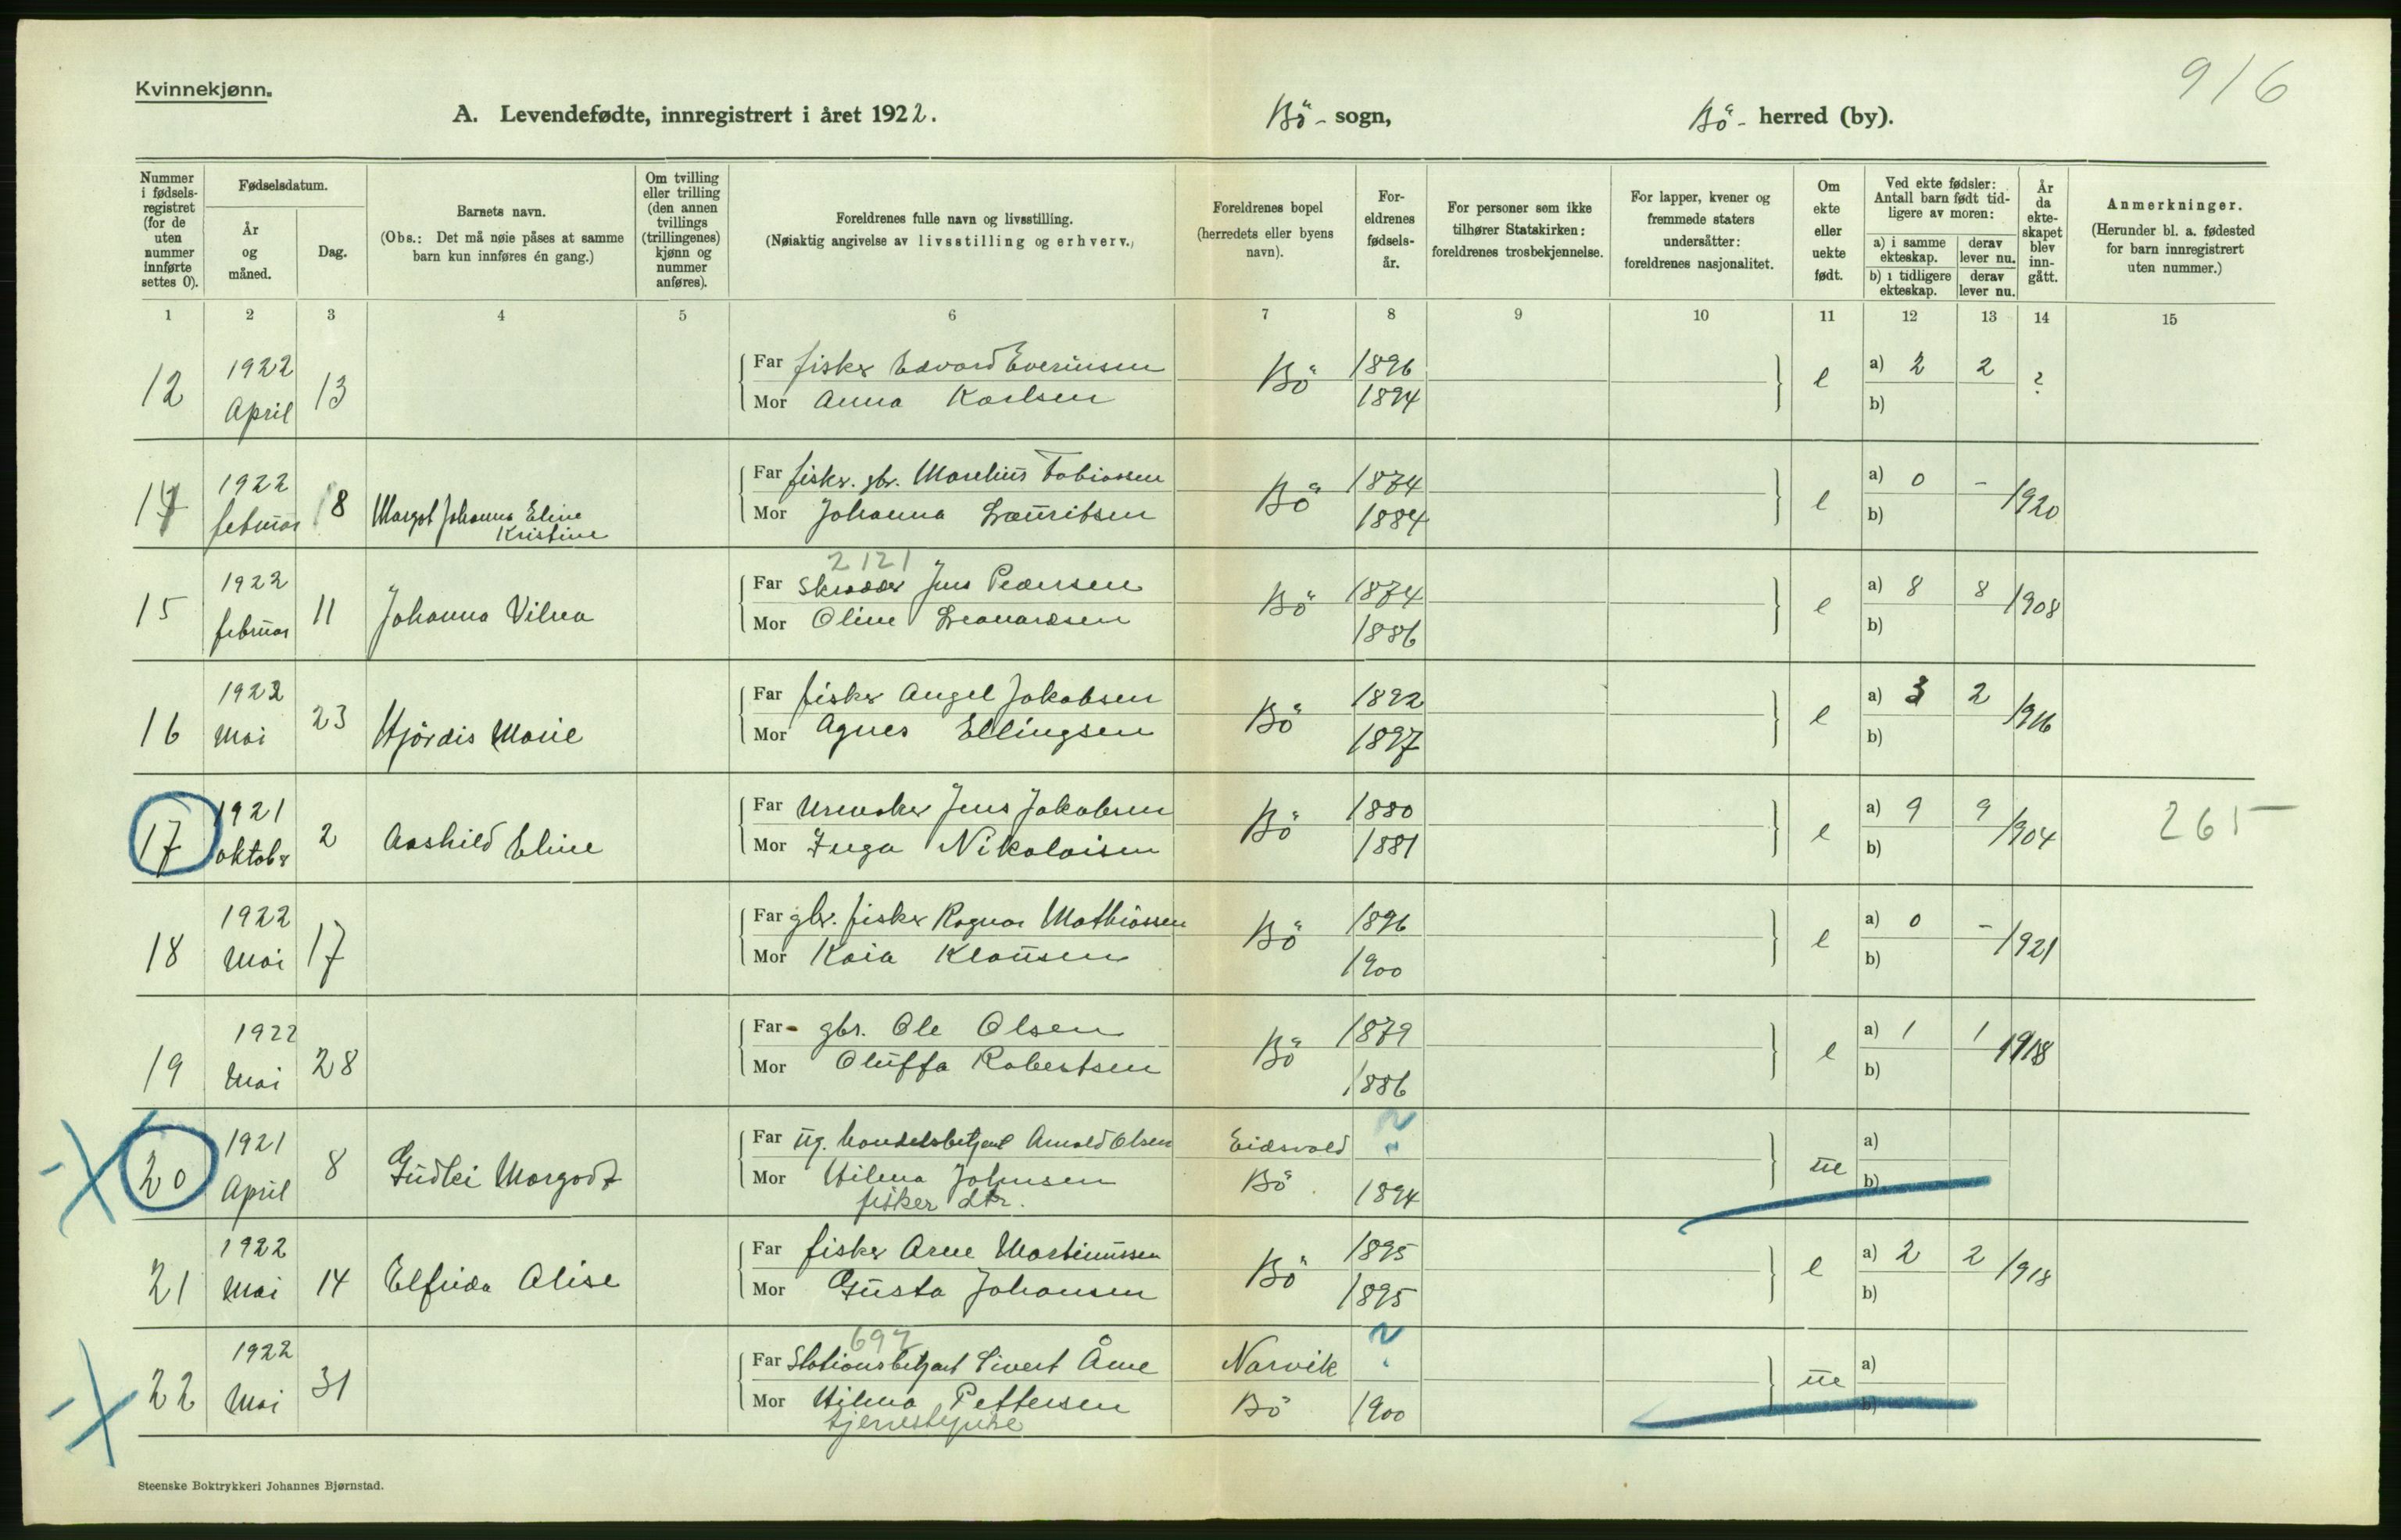 916
Kvinnekjønn.
A. Levendefødte, innregistrert i året 1922. Bö - sogn, Bö - herred (by).
Nummer i fødselsregistret (for de uten nummer innførte settes 0).
Fødselsdatum.
År og måned.
Dag.
Barnets navn.
(Obs.: Det må nøie påses at samme barn kun innføres én gang.)
Om tvilling eller trilling (den annen tvillings (trillingenes) kjønn og nummer anføres).
Foreldrenes fulle navn og livsstilling.
(Nøiaktig angivelse av livsstilling og erhverv.)
Foreldrenes bopel (herredets eller byens navn).
Foreldrenes fødselsår.
For personer som ikke tilhører Statskirken: foreldrenes trosbekjennelse.
For lapper, kvener og fremmede staters undersåtter: foreldrenes nasjonalitet.
Om ekte eller uekte født.
Ved ekte fødsler: Antall barn født tidligere av moren:
a) i samme ekteskap. derav lever nu.
b) i tidligere ekteskap. derav lever nu.
År da ekteskapet blev inngått.
Anmerkninger.
(Herunder bl. a. fødested for barn innregistrert uten nummer.)
1 2 3 4 5 6 7 8 9 10 11 12 13 14 15
12 1922 April 13 Far fisker Edvard Everinsen Bö 1896 e a) 2 2 ?
Mor Anna Karlsen 1894 b)
14 1922 februar 18 Margot Johanna Eline Kristine Far fisker. gbr. Marelius Tobiassen Bö 1874 e a) 0 - 1920
Mor Johanna Lauritsen 1884 b)
2121
15 1922 februar 11 Johanna Vilna Far Skrædder Jens Pedersen Bö 1874 e a) 8 8 1908
Mor Oline Leonardsen 1886 b)
16 1922 Mai 23 Hjördis Marie Far fisker Angel Jakobsen Bö 1892 e a) 3 2 1916
Mor Agnes Ellingsen 1897 b)
17 1921 oktober 2 Aashild Eline Far Urmaker Jens Jakobsen Bö 1880 e a) 9 9 1904 265
Mor Inga Nikolaisen 1881 b)
18 1922 Mai 17 Far gbr. fisker Ragnar Mathiassen Bö 1896 e a) 0 - 1921
Mor Kaia Klausen 1900 b)
19 1922 Mai 28 Far gbr. Ole Olsen Bö 1879 e a) 1 1 1918
Mor Oluffa Robertsen 1886 b)
20 1921 April 8 Gudlei Margodt Far ug. handelsbetjent Arnold Olsen Eidsvold ? ue a)
Mor Hilma Johnsen Bö 1894 b)
fisker dtr.
21 1922 Mai 14 Elfrida Alise Far fisker Arne Martinussen Bö 1895 e a) 2 2 1918
Mor Gusta Johansen 1895 b)
697
22 1922 Mai 31 Far Stationsbetjent Sivert Åme Narvik ? ue a)
Mor Hilma Pettersen Bö 1900 b)
tjenestepike
Steenske Boktrykkeri Johannes Bjørnstad.